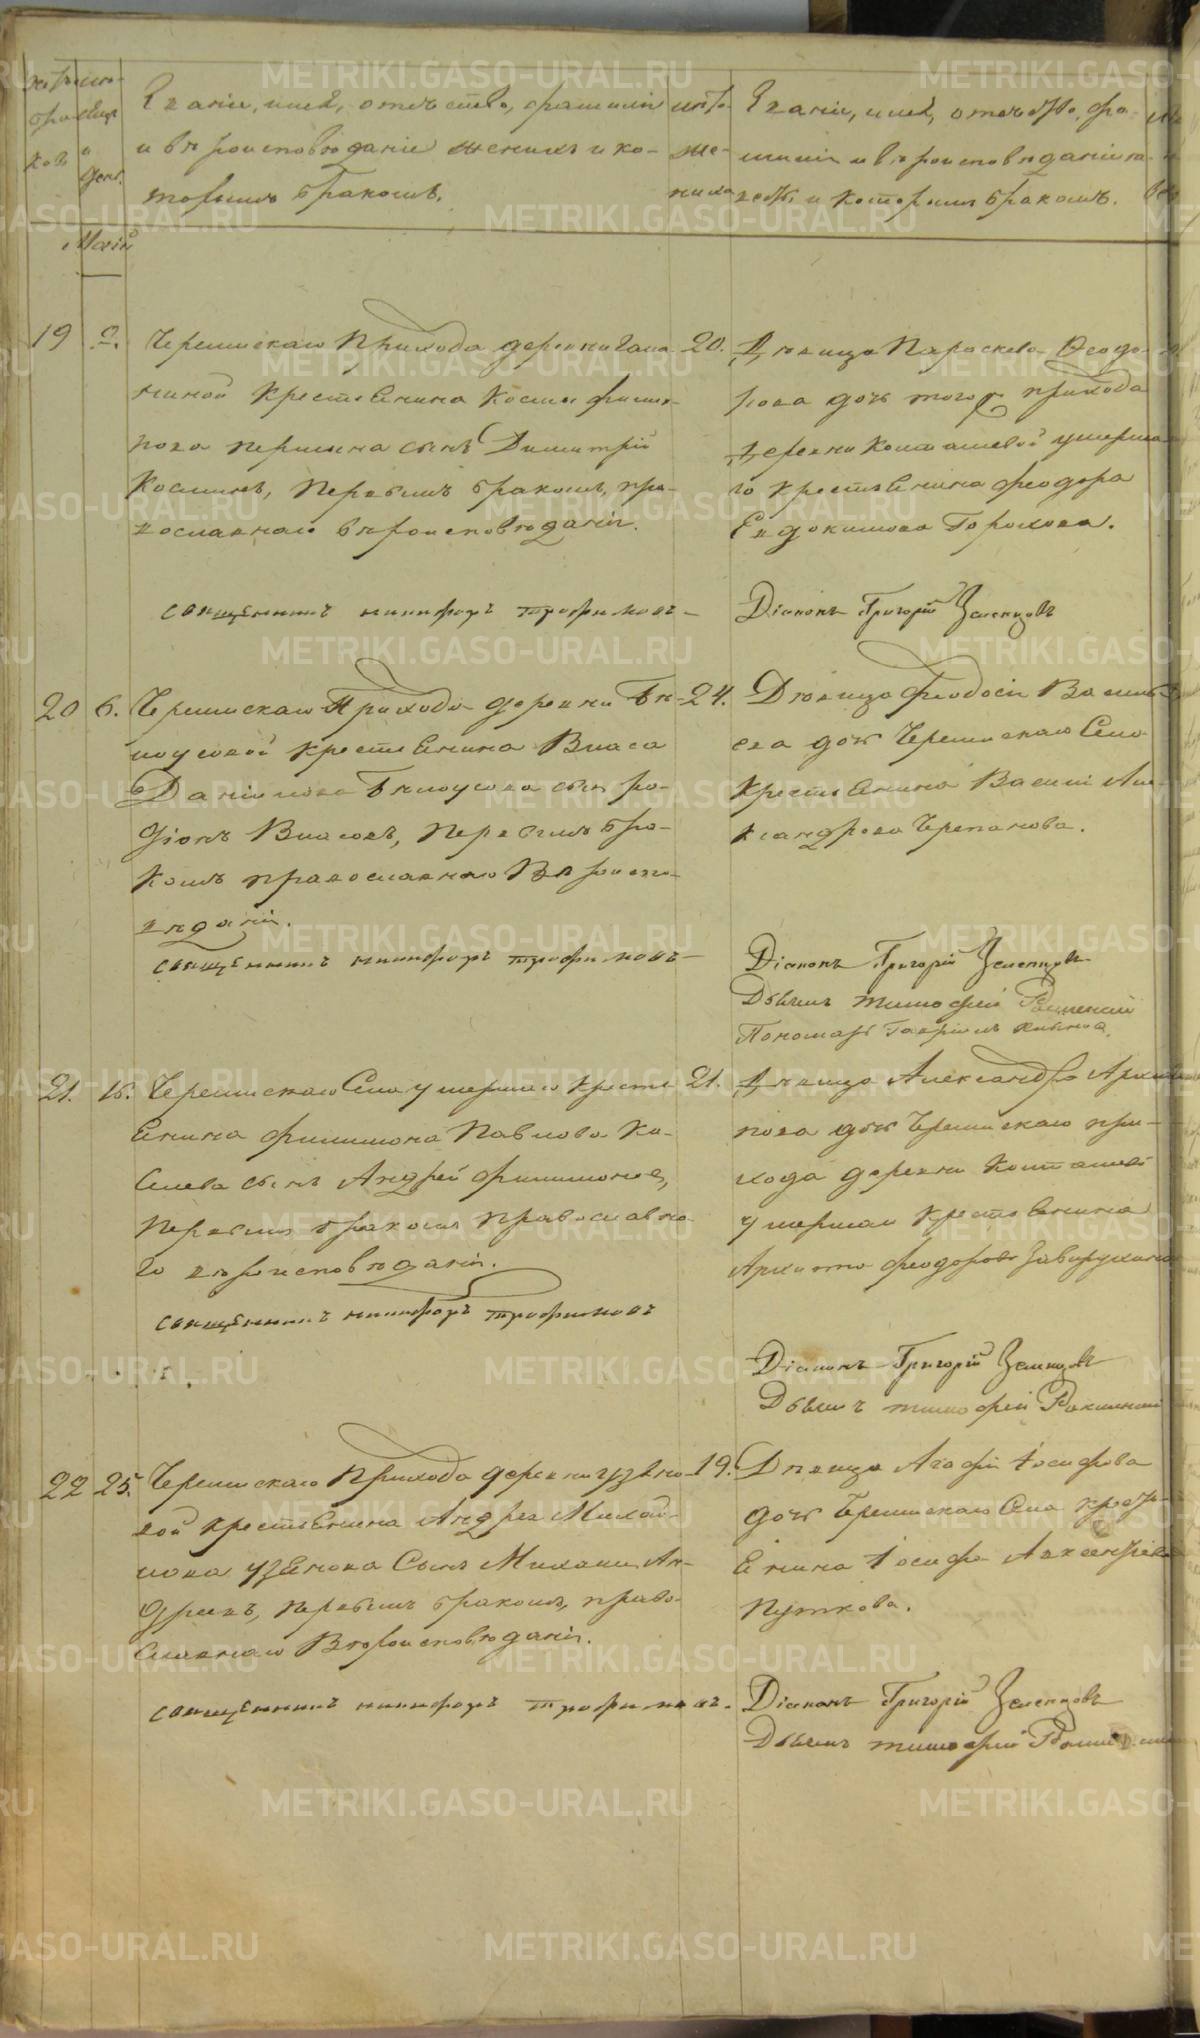 Званіе, имя, отечество, фамилія
и вѣроисповѣданіе жениха и ко-
торымъ бракомъ.
Званіе, имя, отечество, фа-
милія и вѣроисповѣданіе не-
весты и которымъ бракомъ.
Маій
19
Черемискаго Прихода деревни Гала-
ниной крестьянина Космы Филип-
пова Першина сынъ Димитрій
Косминъ, первымъ бракомъ, пра-
вославнаго вѣроисповѣданія.
20.
Дѣвица Параскева Ѳеодо-
рова дочь того прихода
деревни Колташевой умерша-
го крестьянина Феодора
Евдокимова Горохова.
священникъ никифоръ трофимовъ
Діаконъ Григорій Зеленцовъ
20 6. Черемискаго Прихода деревни Бѣ-
лоусовой крестьянина Власа
Даніилова Бѣлоусова сынъ Ро-
діонъ Власовъ, первымъ бра-
комъ православнаго Вѣроиспо-
вѣданія.
24. Дѣвица Феодосія Василь-
ева дочь Черемискаго Села
Крестьянина Василія Але-
ксандрова Черепанова.
священникъ никифоръ трофимовъ
Діаконъ Григорій Зеленцовъ
Дьячекъ тимофей
Пономарь Гавріилъ
21. 16. Черемискаго Села умершаго кресть
янина Филимона Павлова Ко-
сынъ Андрей Филимоновъ,
первымъ бракомъ православна-
го вѣроисповѣданія.
21. Дѣвица Александра Архи
пова дочь Черемискаго при-
хода деревни Колташевой
умершаго крестьянина
Архипа Феодорова Завирухина
священникъ никифоръ трофимовъ
Діаконъ Григорій Зеленцовъ
Дьячекъ тимофей
22 25. Черемискаго Прихода деревни Узяно-
вой крестьянина Андрея Михай-
лова Узянова Сынъ Михаилъ Ан-
дреевъ, первымъ бракомъ, право-
славнаго Вѣроисповѣданія.
19. Дѣвица Агафія Іосифова
дочь Черемискаго Села крестья-
янина Іосифа Авксентьева
Путкова.
священникъ никифоръ трофимовъ.
Діаконъ Григорій Зеленцовъ
Дьячекъ тимофей
METRIKI.GASO-URAL.RU